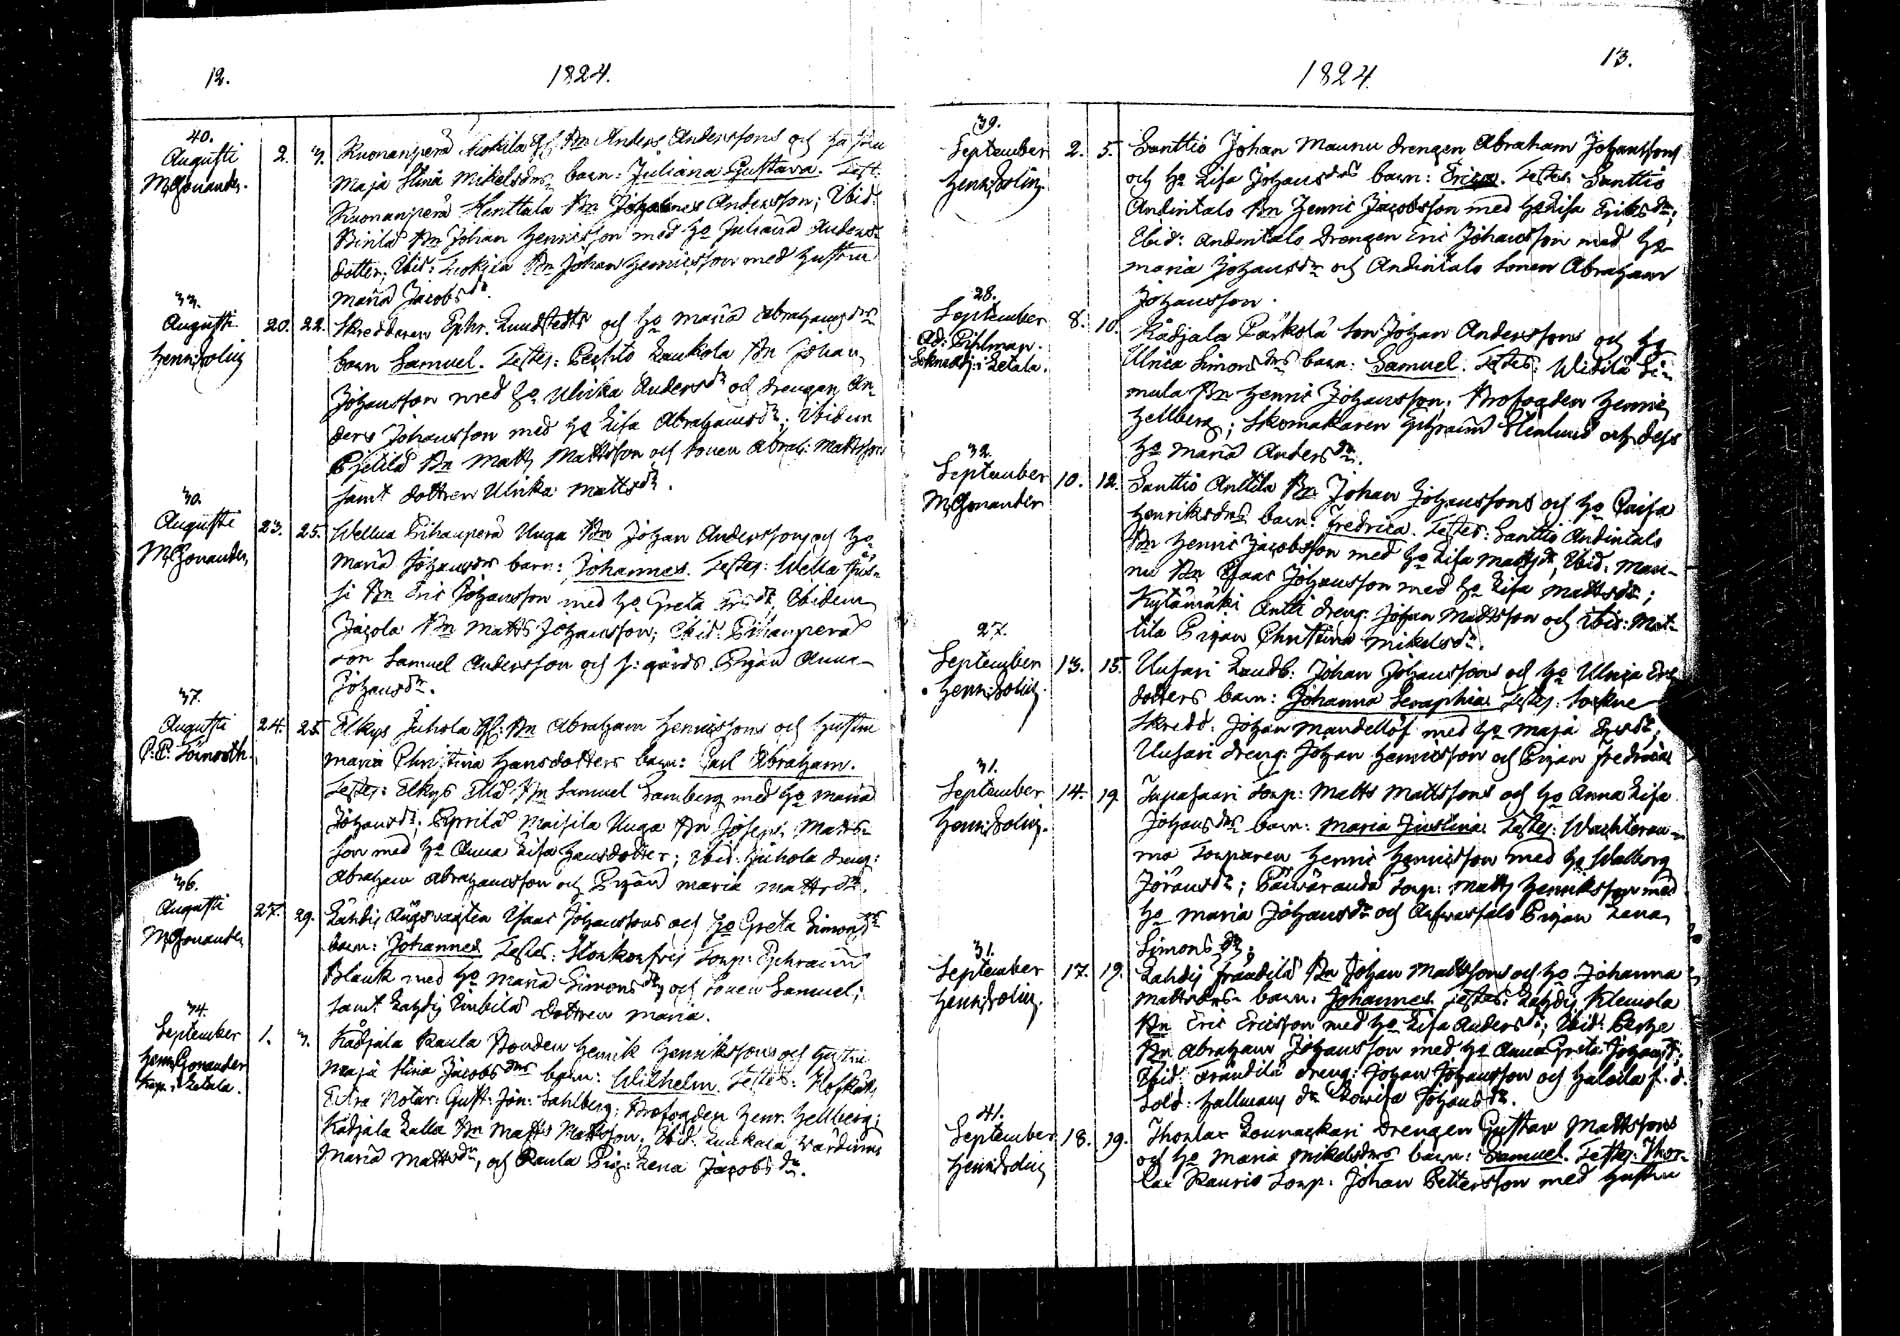 12.
1824.
40.
Augusti
M. Gonander.
2.
3.
Kuonanperä Anders Anderssons och hustru
Maja Stina Mikelsdrs barn: Juliana Gustava. Test:
Kuonanperä Henttala Bn Johannes Andersson; Ibid:
Bn Johan Henricsson med ho Juliana Anders-
dotter, Ibid: Bn Johan Henricsson med hustru
Maria Jacobsdr.
33.
Augusti
Henr: Solin
20.
22.
Skreddaren Ephr. Lundstedts och ho Maria Abrahamsdrs
barn Samuel. Testes: Laukola Bn Johan
Johansson med ho Ulrika Andersdr och drengen An-
ders Johansson med ho Lisa Abrahamsdr; Ibidem
Bn Matts Mattsson och sonen Abrah: Mattsson
samt dottren Ulrika Mattsdr.
30.
Augusti
M. Gonander.
23.
25.
Wellua Pihanperä Uuga Bn Johan Anderssons och ho
Maria Johansdrs barn: Johannes. Testes: Wellua
Bn Eric Johansson med ho Greta Ersdr, Ibidem
Bn Matts Johansson; Ibid: Pihanperä
son Samuel Andersson och s: gårds Pigan Anna
Johansdr.
37.
Augusti
24.
25.
Elkys Juhola Bn Abraham Henricssons och hustru
Maria Christina Hansdotters barn: Carl Abraham.
Testes: Elkys Bn Samuel Lamberg med ho Maria
Johansdr; Maisila Uuga Bn Joseph Matts-
son med ho Anna Lisa Hansdotter; Ibid: Juhola dreng:
Abraham Abrahamsson och Pigan Maria Mattsdr.
36.
Augusti
M. Gonander
27.
29.
Isaac Johanssons och ho Greta Simonsdrs
barn: Johannes Testes: Ephraim
Blank med ho Maria Simonsdr, och sonen Samuel;
samt Lahdis dottren Maria.
34.
September
Henr. Gonander
Kap: i Letala.
1.
3.
Kådjala Kaula Bonden Henrik Henrikssons och hustru
Maja Stina Jacobsdrs barn: Wilhelm. Testes:
Extra Notar: Gust: Joh: Sahlberg; Brofogden Henr. Hellberg;
Kådjala Lalla Bn Matts Mattsson. Ibid: värdinna
Maria Mattsdr, och Kaula Pig: Lena Jacobsdr.
13.
1824.
39.
September
Henr: Solin.
2.
5.
Santtio Johan Maunu drengen Abraham Johanssons
och ho Lisa Johansdrs barn: Erica. Testes: Santtio
Andintalo Bn Henric Jacobsson med ho Lisa Eriksdr;
Ibid: Andintalo Drengen Eric Johansson med ho
Maria Johansdr och Andintalo sonen Abraham
Johansson.
28.
September
Ad: Pihlman.
i Letala.
8.
10.
Kådjala Pärkölä son Johan Anderssons och ho
Ulrica Simonsdrs barn: Samuel. Testes: Widilä Si-
mula Bn Henric Johansson, Brofogden Henric
Hellberg; Skomakaren Ephraim och dess
ho Maria Andersdr.
32.
September
M. Gonander
10.
12.
Santtio Anttila Bn Johan Johanssons och ho Caisa
Henriksdrs barn: Fredrica. Testes: Santtio Andintalo
Bn Henric Jacobsson med ho Lisa Mattsdr, Ibid: Mau-
nu Bn Isaac Johansson med ho Lisa Mattsdr;
Kylämäki Antti dreng: Johan Mattsson och Ibid: Mat-
tila Pigan Christina Mikelsdr.
27.
September
Henr: Solin.
13.
15.
Uusari Landb: Johan Johanssons och ho Ulrica Ers-
dotters barn: Johanna Seraphia. Testes: Sockne
Skredd: Johan Mandellöf med ho Maja Ersdr,
Uusari dreng: Johan Henricsson och Pigan Fredrica
31.
September
Henr: Solin.
14.
19.
Tupasaari Torp: Matts Mattssons och ho Anna Lisa
Johansdrs barn: Maria Justina. Testes:
Torparen Henric Henricsson med ho Walborg
Jöransdr; Torp: Matts Henriksson med
ho Maria Johansdr och Pigan Lena
Simonsdr.
31.
September
Henr: Solin.
17.
19.
Lahdis Frändilä Bn Johan Mattssons och ho Johanna
Mattsdrs barn: Johannes. Testes: Lahdis Klemola
Bn Eric Ericsson med ho Lisa Andersdr; Ibid:
Bn Abraham Johansson med ho Anna Greta Johansdr;
Ibid: Frändilä dreng: Johan Johansson och
Sold: Hallmans Lovisa Johansdr.
41.
September
Henr: Solin
18.
19.
Thorlax Lounaskari Drengen Gustav Mattssons
och ho Maria Mikelsdrs barn: Samuel. Testes: Thor-
lax Kauris Torp: Johan Pettersson med hustru